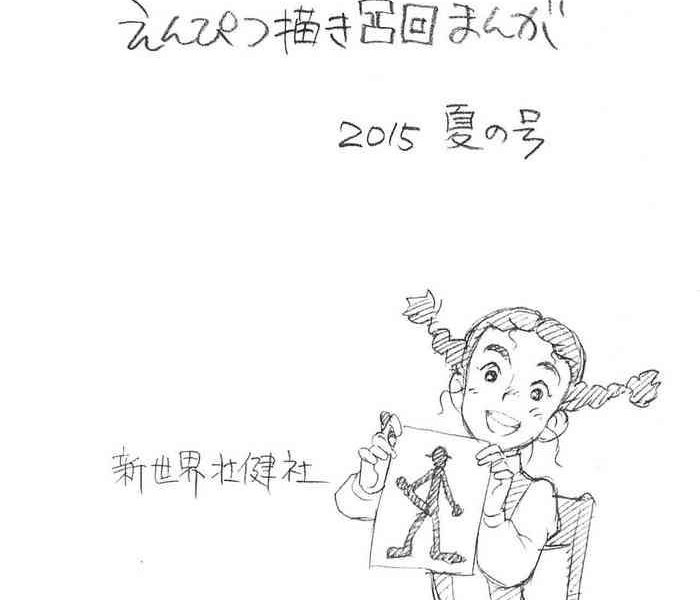 えんぴつ描き回まんが
2015 夏の号
新世界壮健社